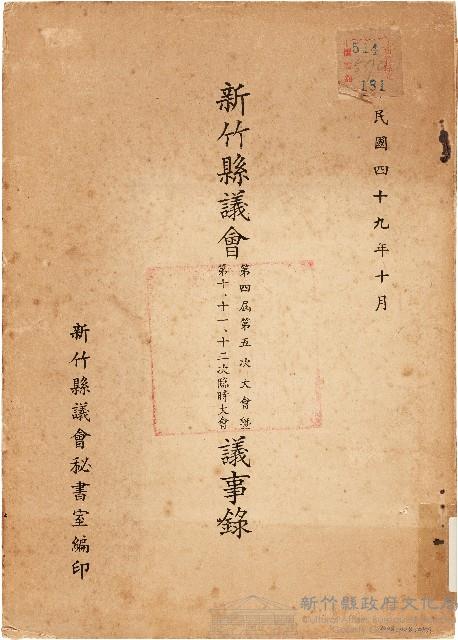 民國四十九年十月
新竹縣議會
第四屆第五次大會暨
第十、十一、十二次臨時大會
議事錄
新竹縣議會秘書室編印
514
131
新竹縣政府文化局